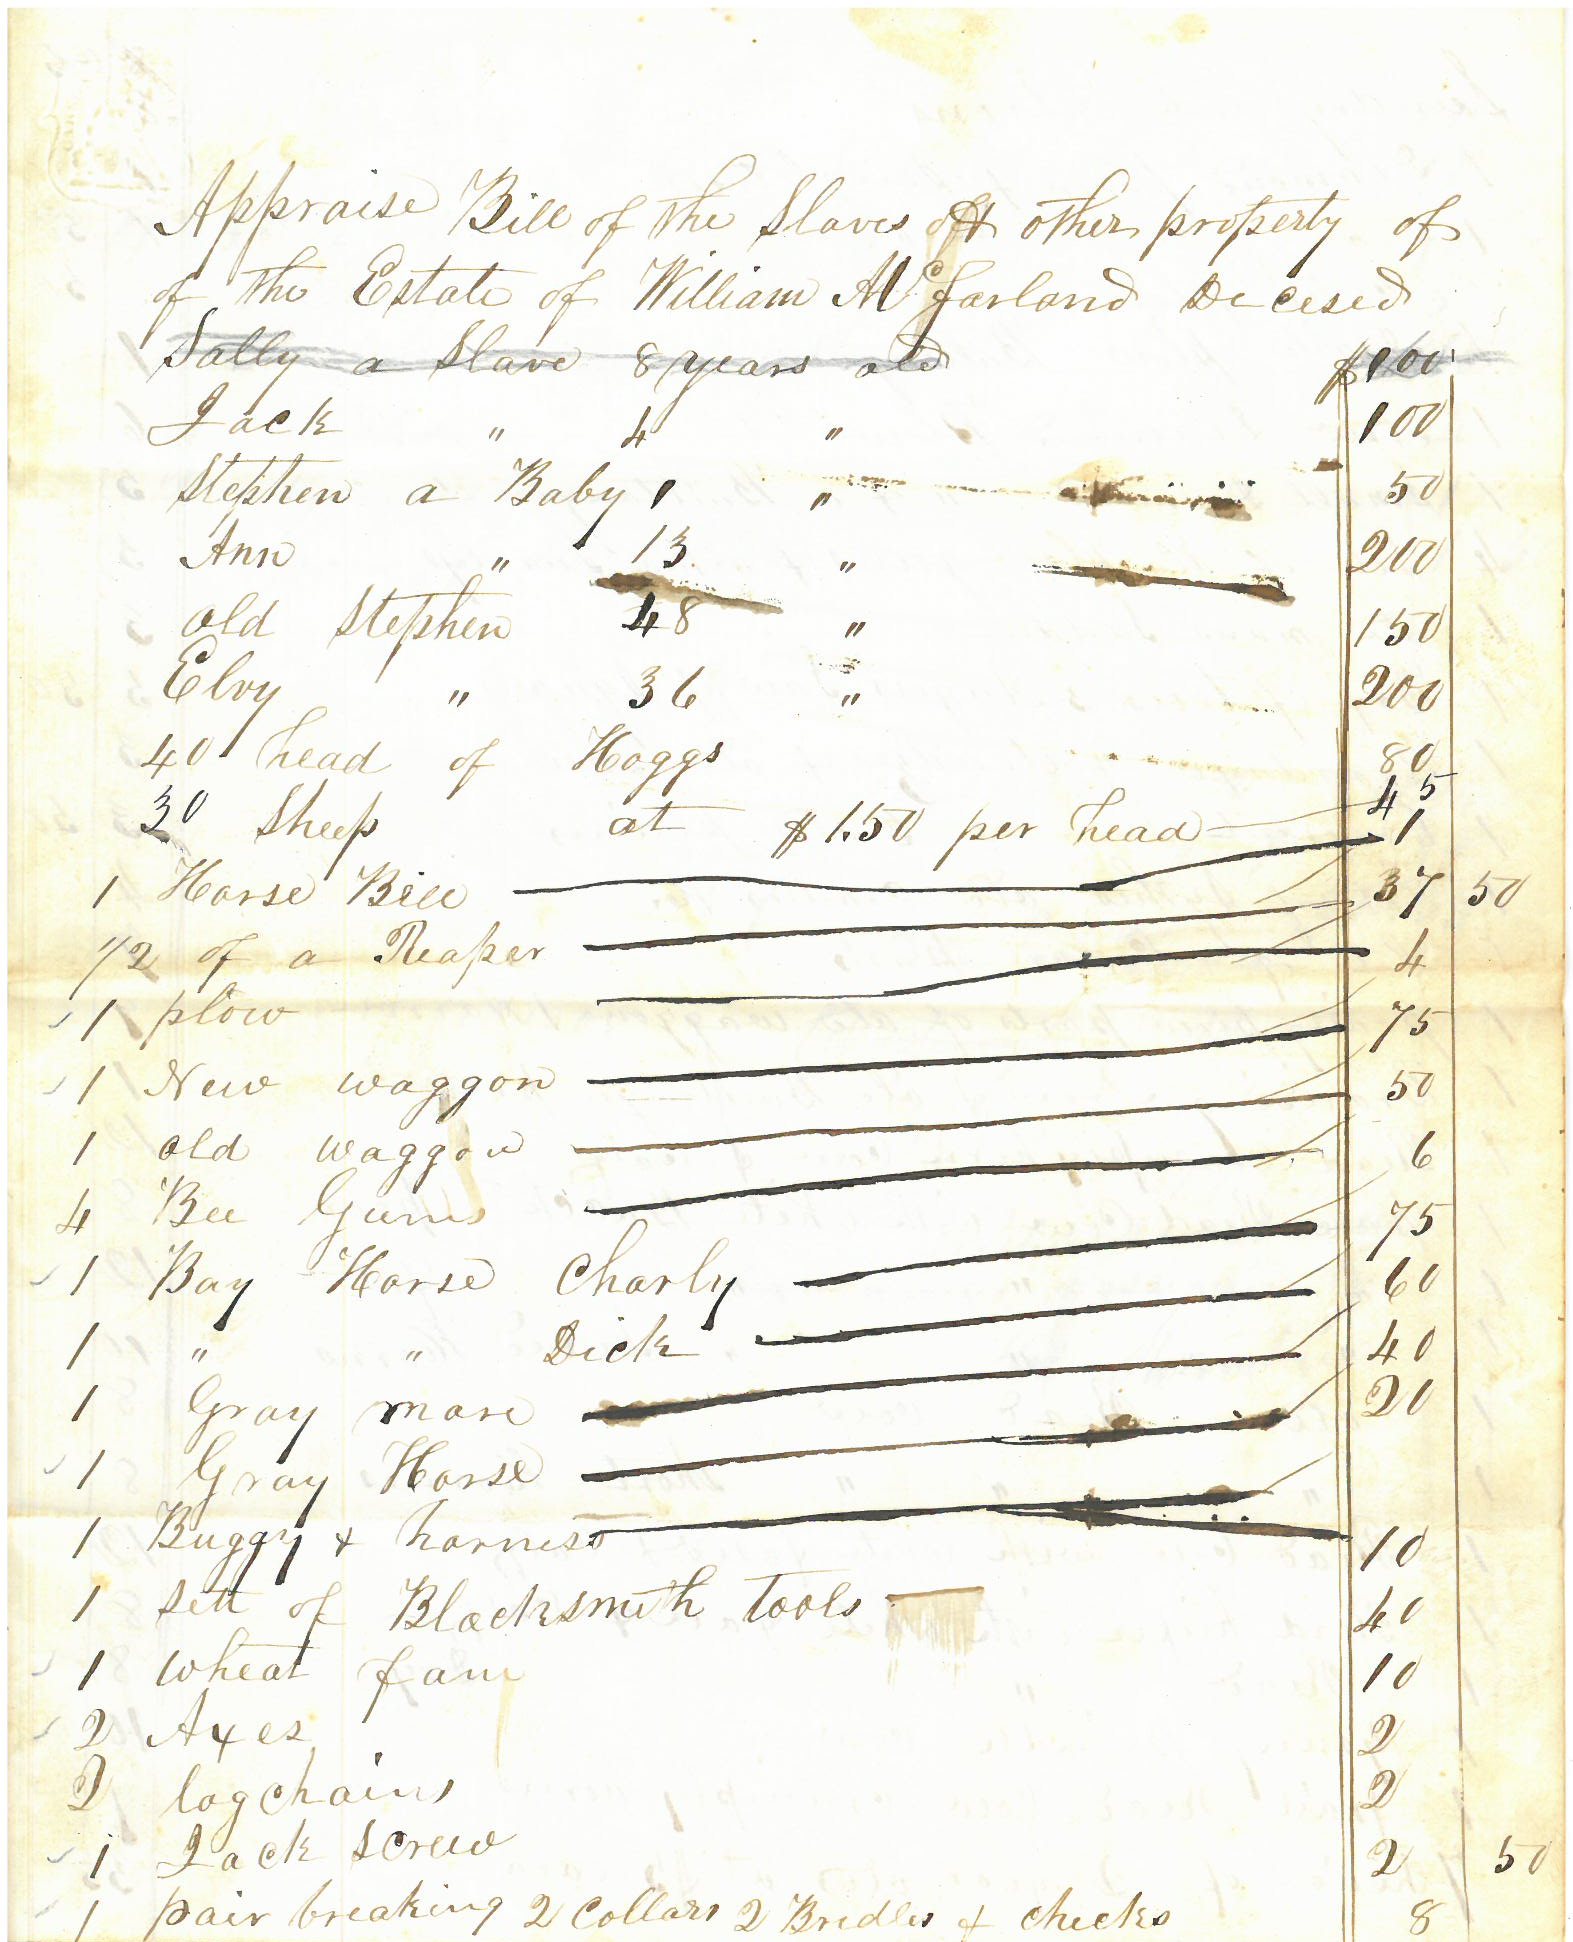 Appraise Bill of the Slaves & other property of
of the Estate of William McFarland Decesed
Sally a Slave 8 years old $100
Jack " 4 " 100
Stephen a Baby 1 " 50
Ann " 13 " 200
old Stephen 48 " 150
Elvy " 36 " 200
40 head of Hoggs 80
30 Sheep at $1.50 per head 45
1 Horse Bill 1
1/2 of a Reaper 37 50
1 plow 4
1 New waggon 75
1 old waggon 50
4 Bee Gums 6
1 Bay Horse Charly 75
1 " " Dick 60
1 Gray mare 40
1 Gray Horse 20
1 Buggy & harness 10
1 sett of Blacksmith tools 40
1 wheat fan 10
2 Axes 2
2 log chains 2
1 Jack screw 2 50
1 pair breaking 2 Collars 2 Bridles & checks 8